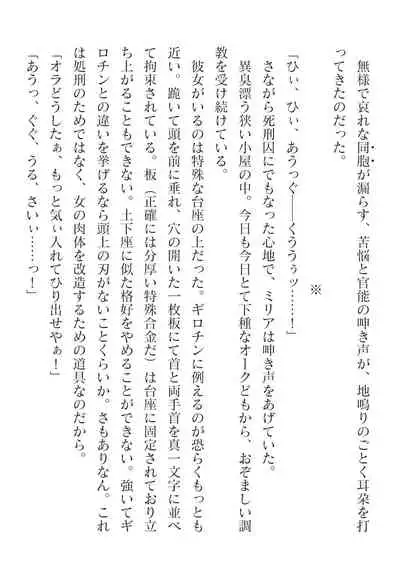 無様で哀れな同胞が漏らす、苦悩と官能の呻き声が、地鳴りのごとく耳朶を打
ってきたのだった。
※
「ひぃ、ひぃ、あうっぐ――くううぅッ……！」
さながら死刑囚にでもなった心地で、ミリアは呻き声をあげていた。
異臭漂う狭い小屋の中。今日も今日とて下種なオークどもから、おぞましい調
教を受け続けている。
彼女がいるのは特殊な台座の上だった。ギロチンに例えるのが恐らくもっとも
近い。跪いて頭を前に垂れ、穴の開いた一枚板にて首と両手首を真一文字に並べ
て拘束されている。板（正確には分厚い特殊合金だ）は台座に固定されており立
ち上がることもできない。土下座に似た格好をやめることができない。強いてギ
ロチンとの違いを挙げるなら頭上の刃がないことくらいか。さもありなん。これ
は処刑のためではなく、女の肉体を改造するための道具なのだから。
「オラどうしたぁ、もっと気ぃ入れてひり出せやぁ！」
「あうっ、ぐぐ、うる、さいぃ……っ！」